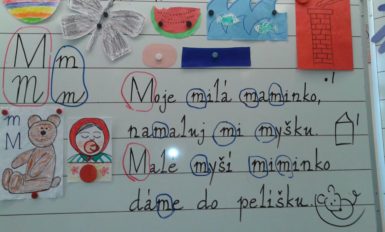 M m
m m
m
M
Moje milá maminko,
namaluj mi myšku.
Male myší miminko
dáme do pelíšku.